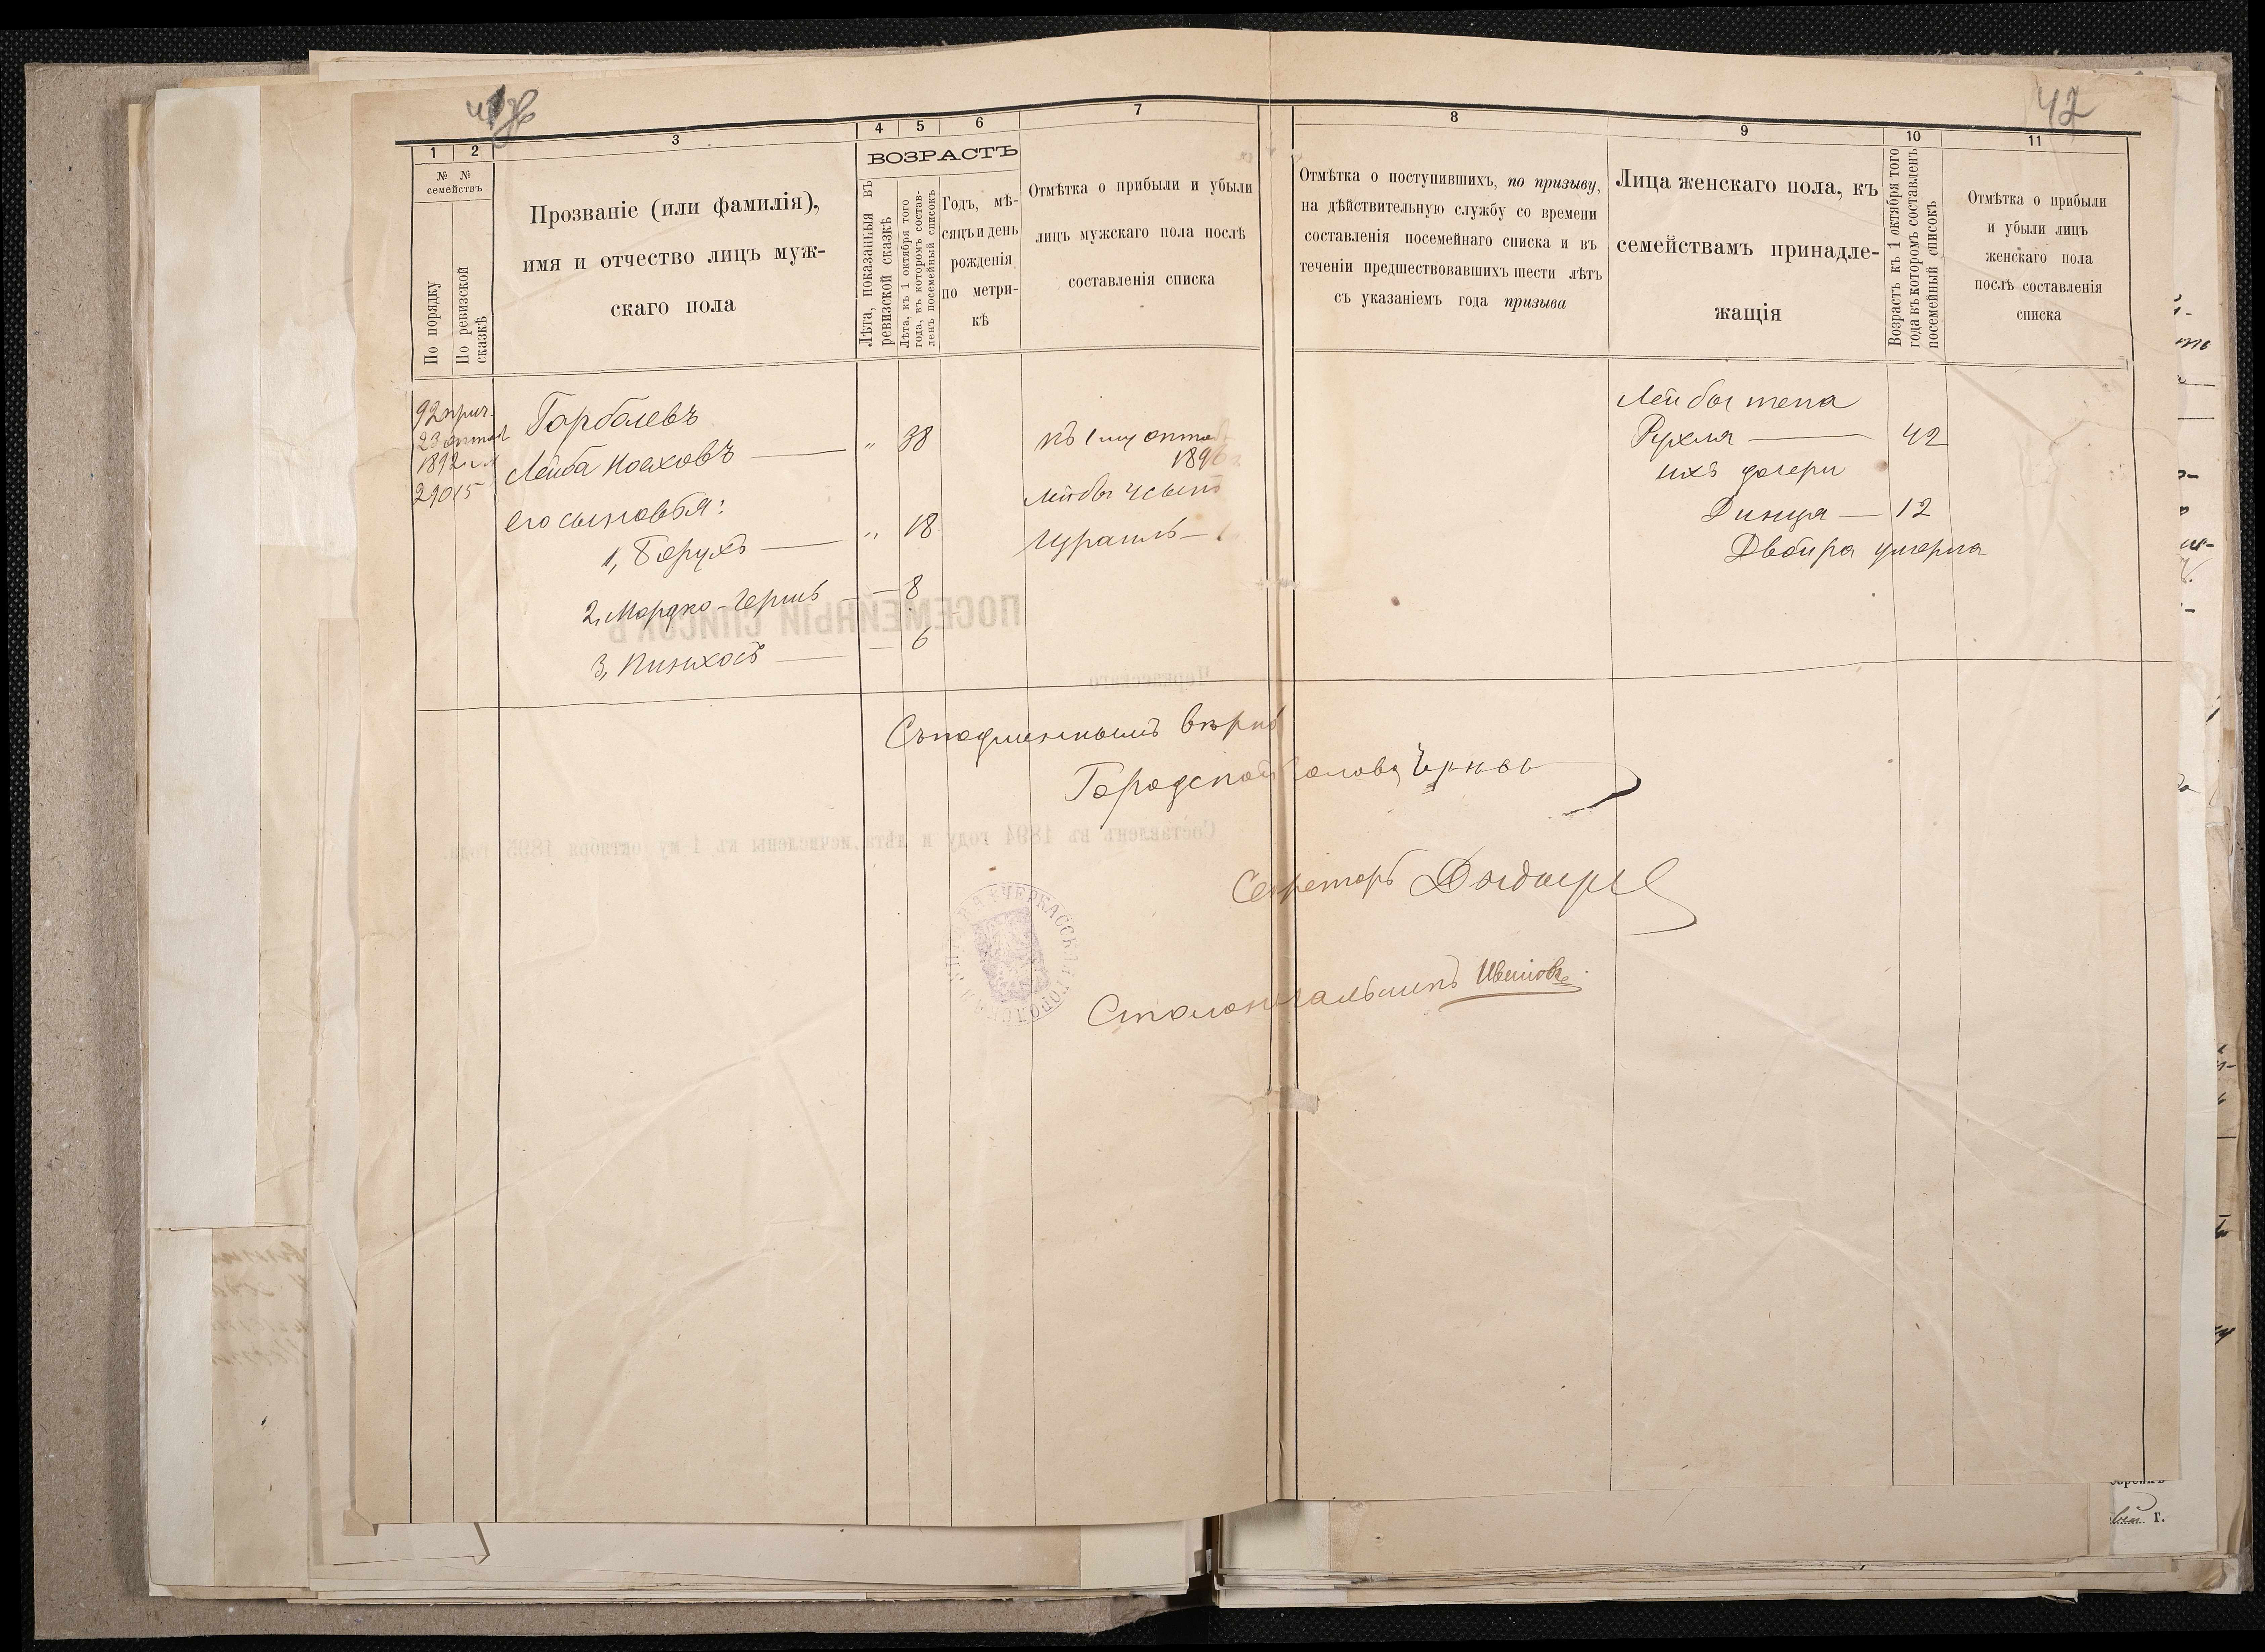 42
1
2
3
4
5
6
7
8
9
10
11
№ №
семействъ
По порядку
По ревизской
сказкѣ
Прозваніе (или фамилія),
имя и отчество лицъ муж-
скаго пола
ВОЗРАСТЪ
Лѣта, показанныя въ
ревизской сказкѣ
Лѣта, къ 1 октября того
года, въ которомъ состав-
ленъ посемейный списокъ
Годъ, мѣ-
сяцъ и день
рожденія
по метри-
кѣ
Отмѣтка о прибыли и убыли
лицъ мужскаго пола послѣ
составленія списка
Отмѣтка о поступившихъ, по призыву,
на дѣйствительную службу со времени
составленія посемейнаго списка и въ
теченіи предшествовавшихъ шести лѣтъ
съ указаніемъ года призыва
Лица женскаго пола, къ
семействамъ принадле-
жащія
Возрастъ къ 1 октября того
года въ которомъ составленъ
посемейный списокъ
Отмѣтка о прибыли
и убыли лицъ
женскаго пола
послѣ составленія
списка
92 прич.
23
1892
29015
Горбалевъ
Лейба — " 38
его сыновья:
1, Борухъ — " 18
2, Мордко-Гершъ — — 8
3, Пинхосъ — — 6
къ 1му октяб
189
Лейбы 4 сынъ
Изра
Лейбы жена
Рухля — 42
ихъ дочери
Динця — 12
Двойра умерла
ПОСЕМЕЙНЫЙ СПИСОКЪ
Черкасскаго
Составленъ въ 1894 году и лѣта исчислены къ 1-му октября 1895 года.
Съ подлиннымъ вѣрно
Городской Голова
Секретарь
Столоначальникъ
ЧЕРКАССКАЯ ГОРОДСКАЯ
г.